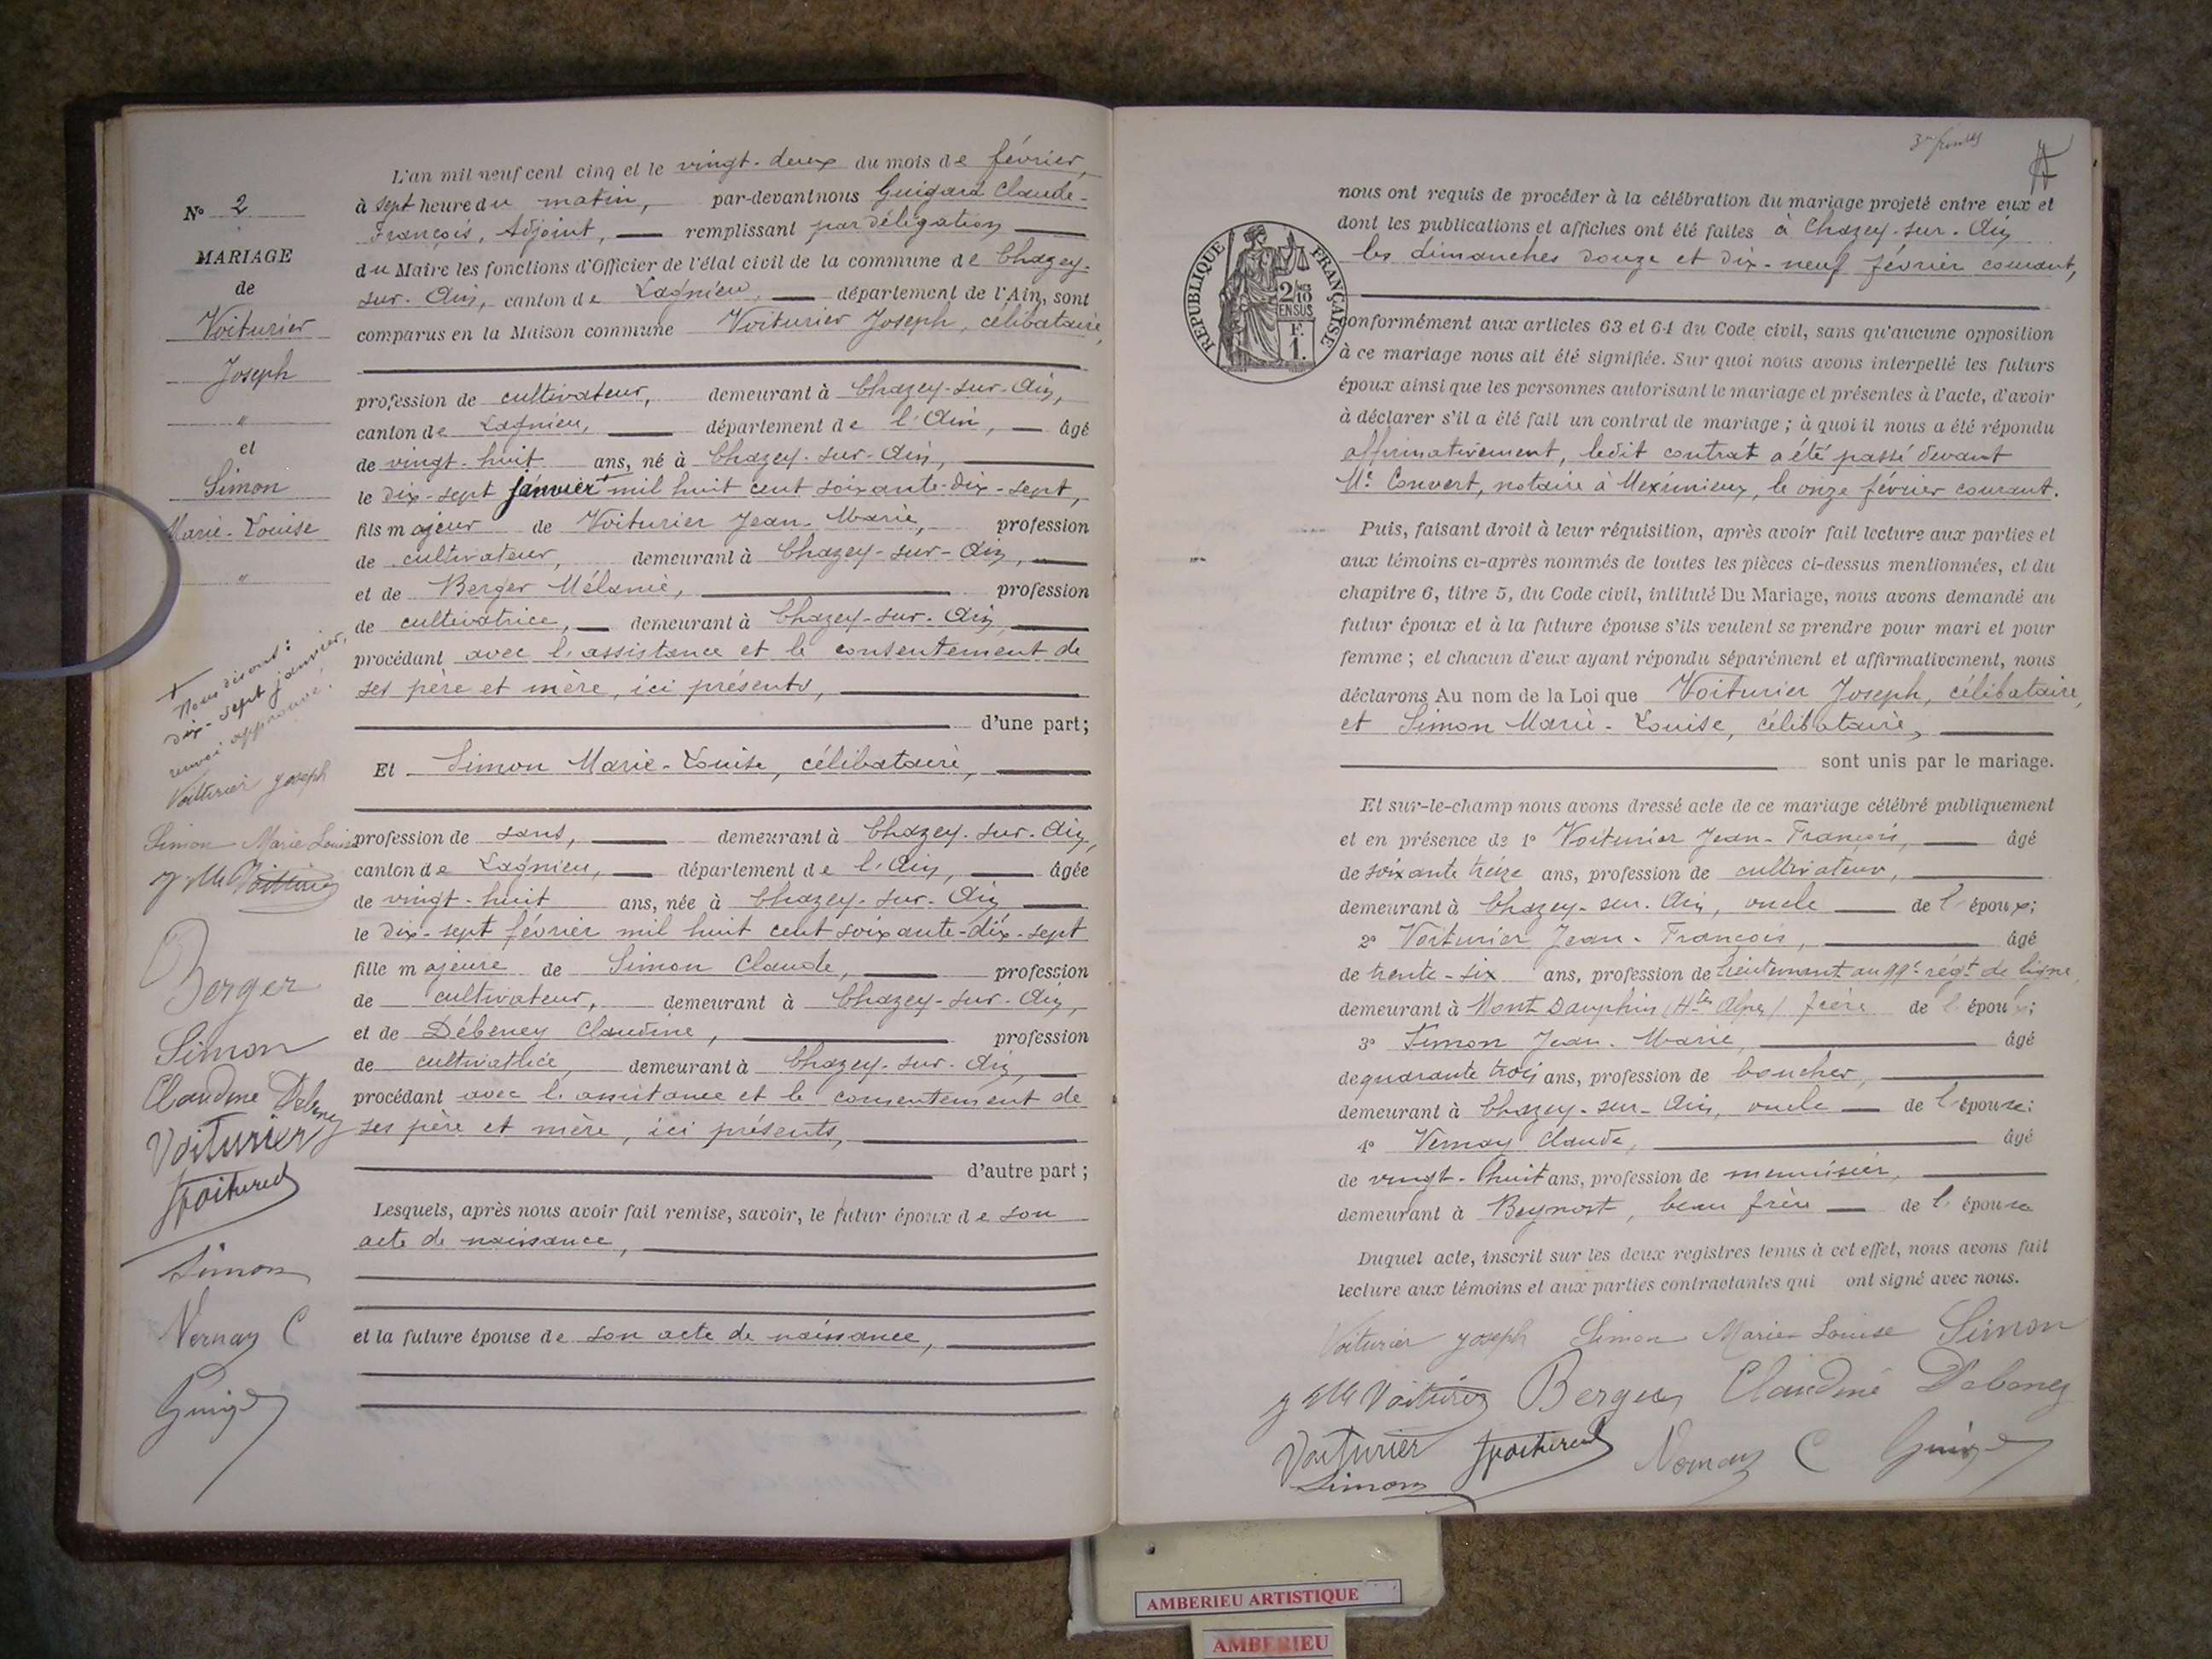 N° 2
MARIAGE
de
Voiturier
Joseph
"
et
Simon
Marie-Louise
"
+
Nous disons :
dix-sept janvier,
renvoi approuvé.
Voiturier Joseph
Simon Marie Louise
J M Voiturier
Berger
Simon
Claudine Debeney
Voiturier
Voiturier
Simon
Vernay C
Guigard
L'an mil neuf cent cinq et le vingt-deux du mois de février,
à sept heure du matin, par-devant nous Guigard Claude-
François, Adjoint, remplissant par délégation
du Maire les fonctions d'Officier de l'état civil de la commune de Chazey-
sur-Ain, canton de Lagnieu, département de l'Ain, sont
comparus en la Maison commune Voiturier Joseph, célibataire,
profession de cultivateur, demeurant à Chazey-sur-Ain,
canton de Lagnieu, département de l'Ain, âgé
de vingt-huit ans, né à Chazey-sur-Ain,
le dix-sept janvier + mil huit cent soixante-dix-sept,
fils majeur de Voiturier Jean-Marie, profession
de cultivateur, demeurant à Chazey-sur-Ain,
et de Berger Mélanie, profession
de cultivatrice, demeurant à Chazey-sur-Ain,
procédant avec l'assistance et le consentement de
ses père et mère, ici présents,
d'une part;
Et Simon Marie-Louise, célibataire,
profession de sans, demeurant à Chazey-sur-Ain,
canton de Lagnieu, département de l'Ain, âgée
de vingt-huit ans, née à Chazey-sur-Ain
le dix-sept février mil huit cent soixante-dix-sept
fille majeure de Simon Claude, profession
de cultivateur, demeurant à Chazey-sur-Ain,
et de Débeney Claudine, profession
de cultivatrice, demeurant à Chazey-sur-Ain,
procédant avec l'assistance et le consentement de
ses père et mère, ici présents,
d'autre part;
Lesquels, après nous avoir fait remise, savoir, le futur époux de son
acte de naissance,
et la future épouse de son acte de naissance,
RÉPUBLIQUE FRANÇAISE
2/10
EN SUS
F.
1.
nous ont requis de procéder à la célébration du mariage projeté entre eux et
dont les publications et affiches ont été faites à Chazey-sur-Ain
les dimanches douze et dix-neuf février courant,
conformément aux articles 63 et 64 du Code civil, sans qu'aucune opposition
à ce mariage nous ait été signifiée. Sur quoi nous avons interpellé les futurs
époux ainsi que les personnes autorisant le mariage et présentes à l'acte, d'avoir
à déclarer s'il a été fait un contrat de mariage ; à quoi il nous a été répondu
affirmativement, ledit contrat a été passé devant
Me Convert, notaire à Meximieux, le onze février courant.
Puis, faisant droit à leur réquisition, après avoir fait lecture aux parties et
aux témoins ci-après nommés de toutes les pièces ci-dessus mentionnées, et du
chapitre 6, titre 5, du Code civil, intitulé Du Mariage, nous avons demandé au
futur époux et à la future épouse s'ils veulent se prendre pour mari et pour
femme ; et chacun d'eux ayant répondu séparément et affirmativement, nous
déclarons Au nom de la Loi que Voiturier Joseph, célibataire,
et Simon Marie-Louise, célibataire,
sont unis par le mariage.
Et sur-le-champ nous avons dressé acte de ce mariage célébré publiquement
et en présence de 1° Voiturier Jean-François, âgé
de soixante treize ans, profession de cultivateur,
demeurant à Chazey-sur-Ain, oncle de l'époux;
2° Voiturier Jean-François, âgé
de trente-six ans, profession de lieutenant au 99e régt de ligne,
demeurant à Mont Dauphin (Htes Alpes) frère de l'époux;
3° Simon Jean-Marie, âgé
de quarante trois ans, profession de boucher,
demeurant à Chazey-sur-Ain, oncle de l'épouse;
4° Vernay Claude, âgé
de vingt-huit ans, profession de menuisier,
demeurant à Beynost, beau frère de l'épouse
Duquel acte, inscrit sur les deux registres tenus à cet effet, nous avons fait
lecture aux témoins et aux parties contractantes qui ont signé avec nous.
Voiturier Joseph Simon Marie Louise Simon
J M Voiturier Berger Claudine Debeney
Voiturier Voiturier Vernay C Guigard
Simon
AMBERIEU ARTISTIQUE
AMBERIEU